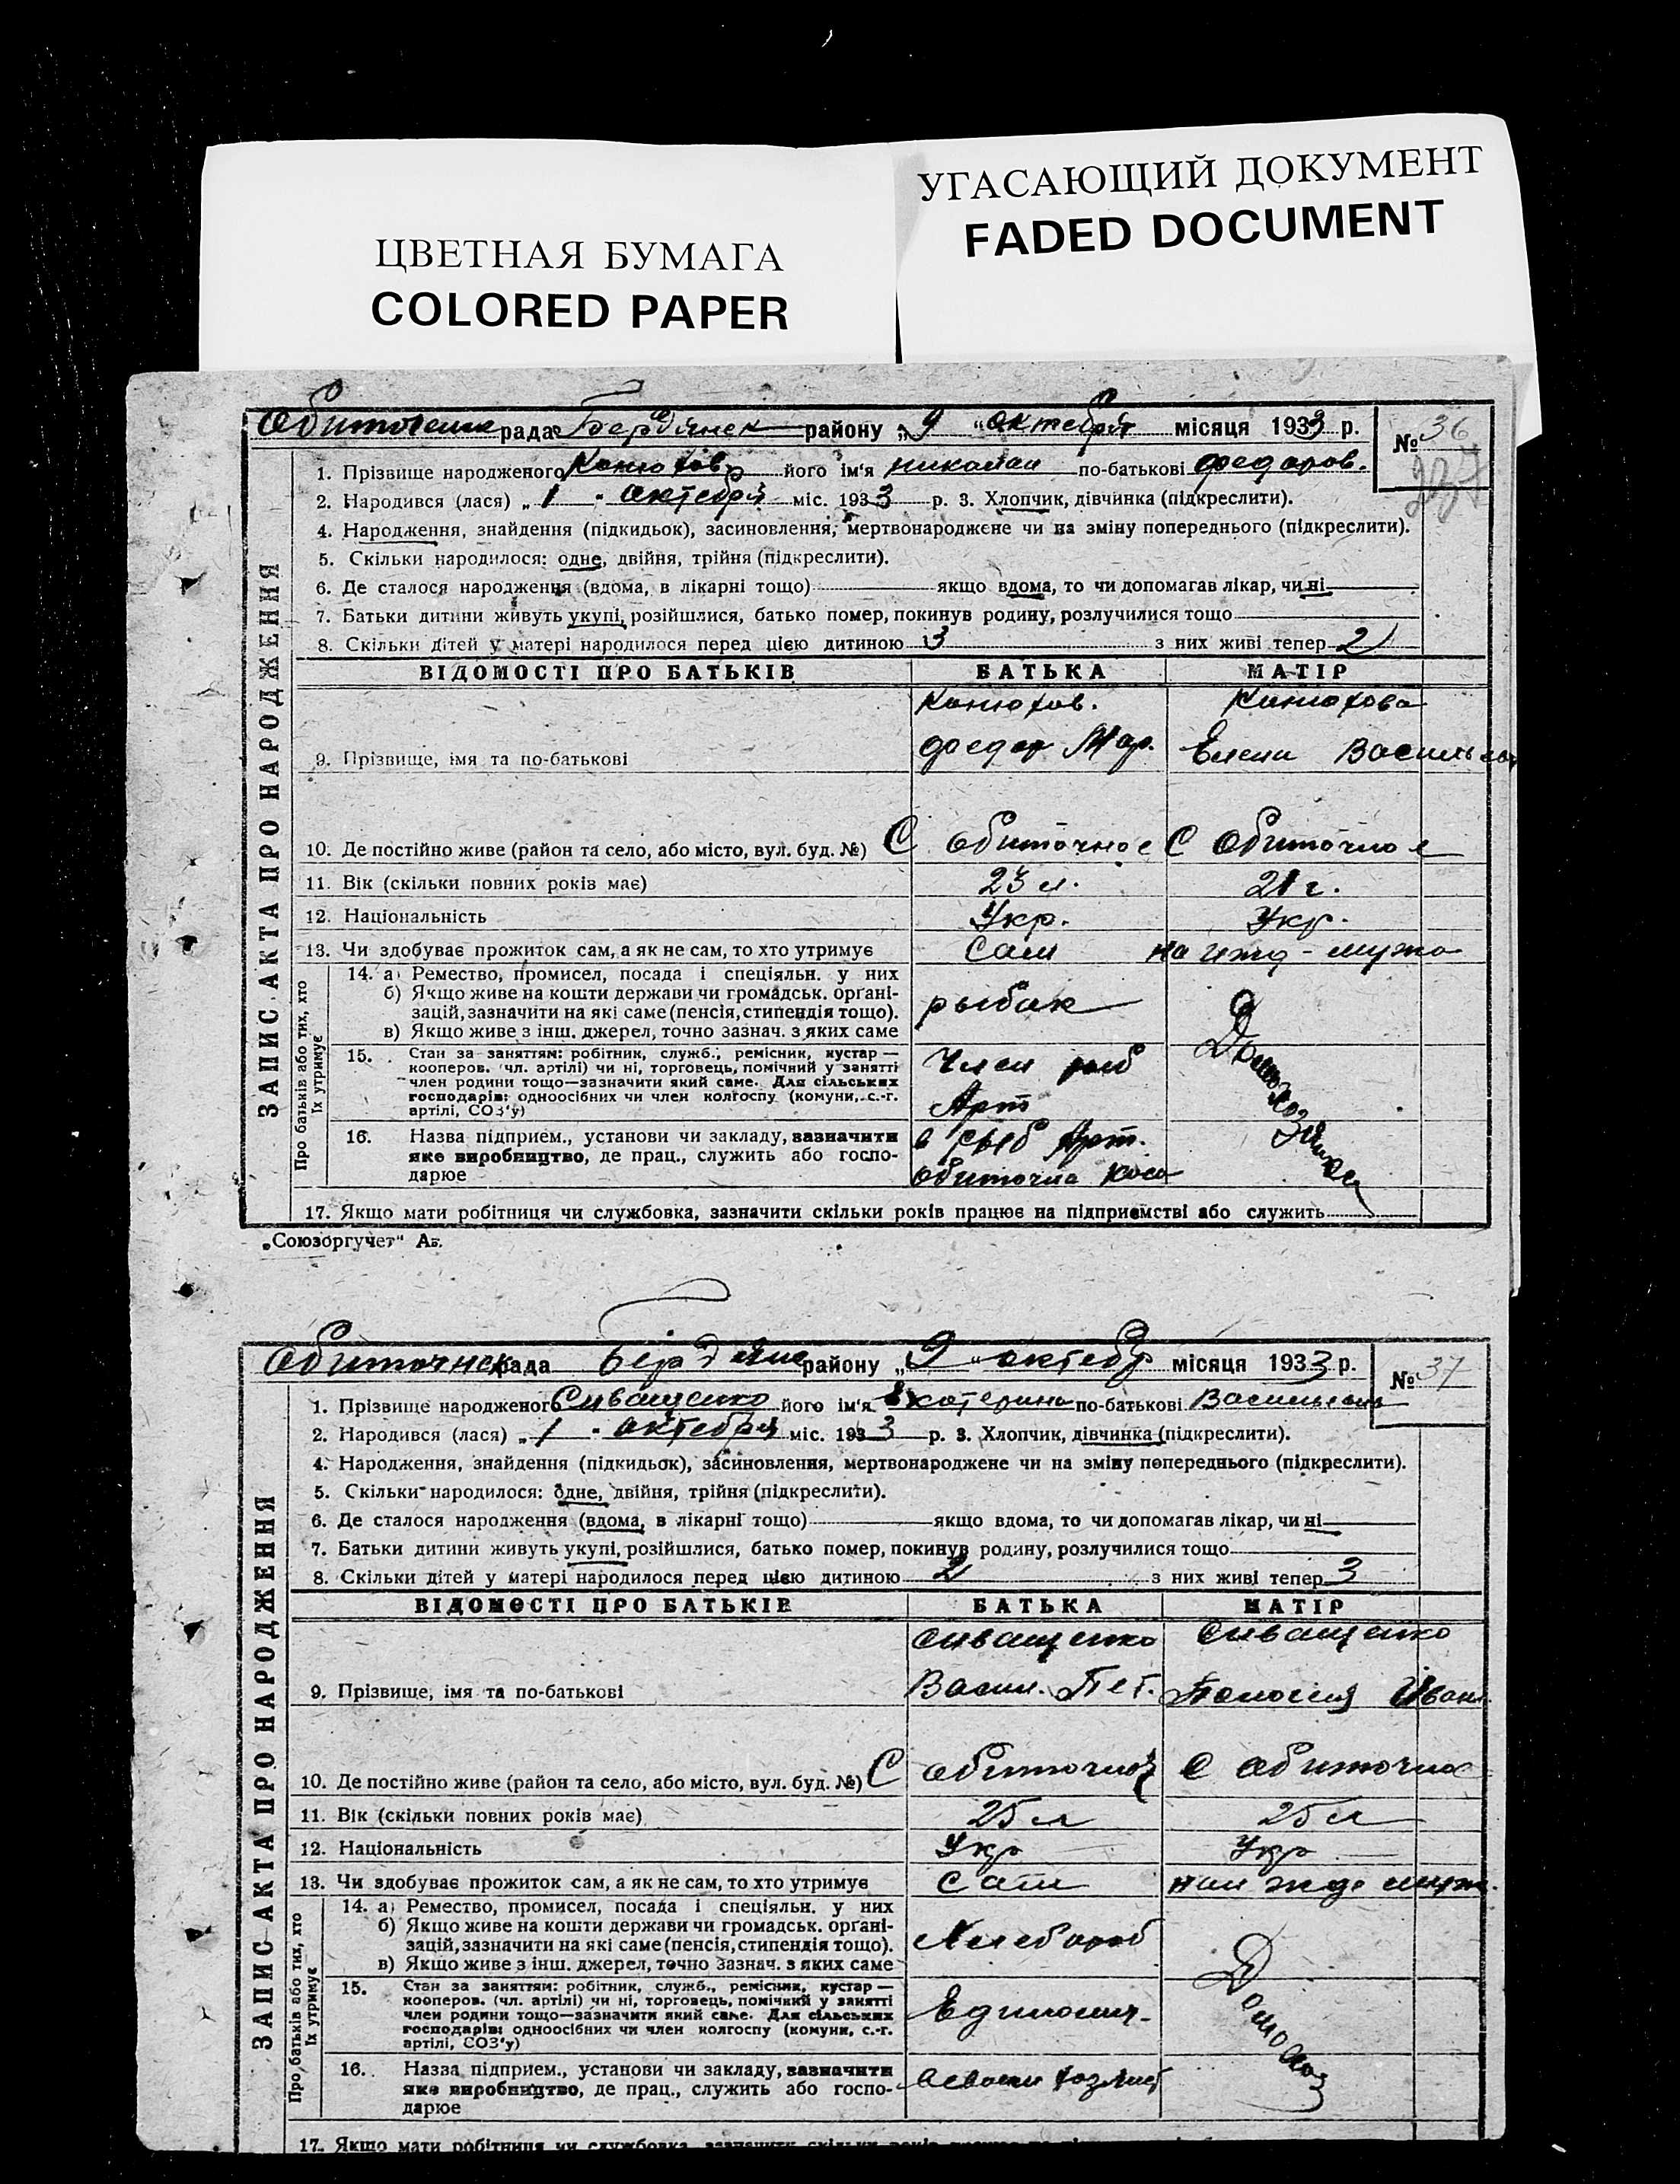 УГАСАЮЩИЙ ДОКУМЕНТ
FADED DOCUMENT
ЦВЕТНАЯ БУМАГА
COLORED PAPER
рада Бердянск району „9 “ октебря місяця 1933 р. № 36
237
ЗАПИС АКТА ПРО НАРОДЖЕННЯ
1. Прізвище народженого Конюхов його ім'я николай по-батькові федоров.
2. Народився (лася) „ 1 " октебря міс. 1933 р. 3. Хлопчик, дівчинка (підкреслити).
4. Народження, знайдення (підкидьок), засиновлення, мертвонароджене чи на зміну попереднього (підкреслити).
5. Скільки народилося: одне, двійня, трійня (підкреслити).
6. Де сталося народження (вдома, в лікарні тощо) якщо вдома, то чи допомагав лікар, чи ні
7. Батьки дитини живуть укупі, розійшлися, батько помер, покинув родину, розлучилися тощо
8. Скільки дітей у матері народилося перед цією дитиною 3 з них живі тепер 2
ВІДОМОСТІ ПРО БАТЬКІВ БАТЬКА МАТІР
Конюхов. Конюхова
9. Прізвище, імя та по-батькові федор Мар. Елена
10. Де постійно живе (район та село, або місто, вул. буд. №) С обиточное С обиточное
11. Вік (скільки повних років має) 23 л. 21 г.
12. Національність Укр. Укр.
13. Чи здобуває прожиток сам, а як не сам, то хто утримує Сам на ижд - мужа
Про батьків або тих, хто їх утримує
14. а) Ремество, промисел, посада і спеціяльн. у них
б) Якщо живе на кошти держави чи громадськ. органі-
зацій, зазначити на які саме (пенсія, стипендія тощо). рыбак
в) Якщо живе з інш. джерел, точно зазнач. з яких саме
Домохозяйка
15. Стан за заняттям: робітник, служб., ремісник, кустар —
кооперов. (чл. артілі) чи ні, торговець, помічний у занятті
член родини тощо—зазначити який саме. Для сільських
господарів: одноосібних чи член колгоспу (комуни, с.-г.
артілі, СОЗ'у)
Член рыб
Арт
16. Назва підприєм., установи чи закладу, зазначити в рыб Арт.
яке виробництво, де прац., служить або госпо-
дарює обиточна коса
17. Якщо мати робітниця чи службовка, зазначити скільки років працює на підприємстві або служить
„Союзоргучет“ Аг.
рада району „9 “ октебр місяця 1933 р. № 37
ЗАПИС АКТА ПРО НАРОДЖЕННЯ
1. Прізвище народженого Сиващенко його ім'я Екатерина по-батькові
2. Народився (лася) „ 1 " октебря міс. 1933 р. 3. Хлопчик, дівчинка (підкреслити).
4. Народження, знайдення (підкидьок), засиновлення, мертвонароджене чи на зміну попереднього (підкреслити).
5. Скільки народилося: одне, двійня, трійня (підкреслити).
6. Де сталося народження (вдома, в лікарні тощо) якщо вдома, то чи допомагав лікар, чи ні
7. Батьки дитини живуть укупі, розійшлися, батько помер, покинув родину, розлучилися тощо
8. Скільки дітей у матері народилося перед цією дитиною 2 з них живі тепер 3
ВІДОМОСТІ ПРО БАТЬКІВ БАТЬКА МАТІР
Сиващенко Сиващенко
9. Прізвище, імя та по-батькові Васил. Пет. Иван.
10. Де постійно живе (район та село, або місто, вул. буд. №) С С
11. Вік (скільки повних років має) 25 л 25 л
12. Національність Укр Укр
13. Чи здобуває прожиток сам, а як не сам, то хто утримує Сам
Про батьків або тих, хто їх утримує
14. а) Ремество, промисел, посада і спеціяльн. у них
б) Якщо живе на кошти держави чи громадськ. органі-
зацій, зазначити на які саме (пенсія, стипендія тощо). Хлебороб
в) Якщо живе з інш. джерел, точно зазнач. з яких саме
Домохоз
15. Стан за заняттям: робітник, служб., ремісник, кустар —
кооперов. (чл. артілі) чи ні, торговець, помічний у занятті
член родини тощо—зазначити який саме. Для сільських
господарів: одноосібних чи член колгоспу (комуни, с.-г.
артілі, СОЗ'у)
16. Назва підприєм., установи чи закладу, зазначити
яке виробництво, де прац., служить або госпо-
дарює
17. Якщо мати робітниця чи службовка, зазначити скільки років